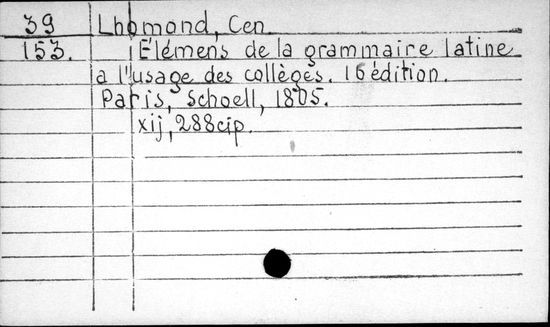 39 Lhomond, Cen.
153. Élémens de la grammaire latine
a l'usage des collèges. 16 édition.
Paris, Schoell, 1805.
xij, 288cip.